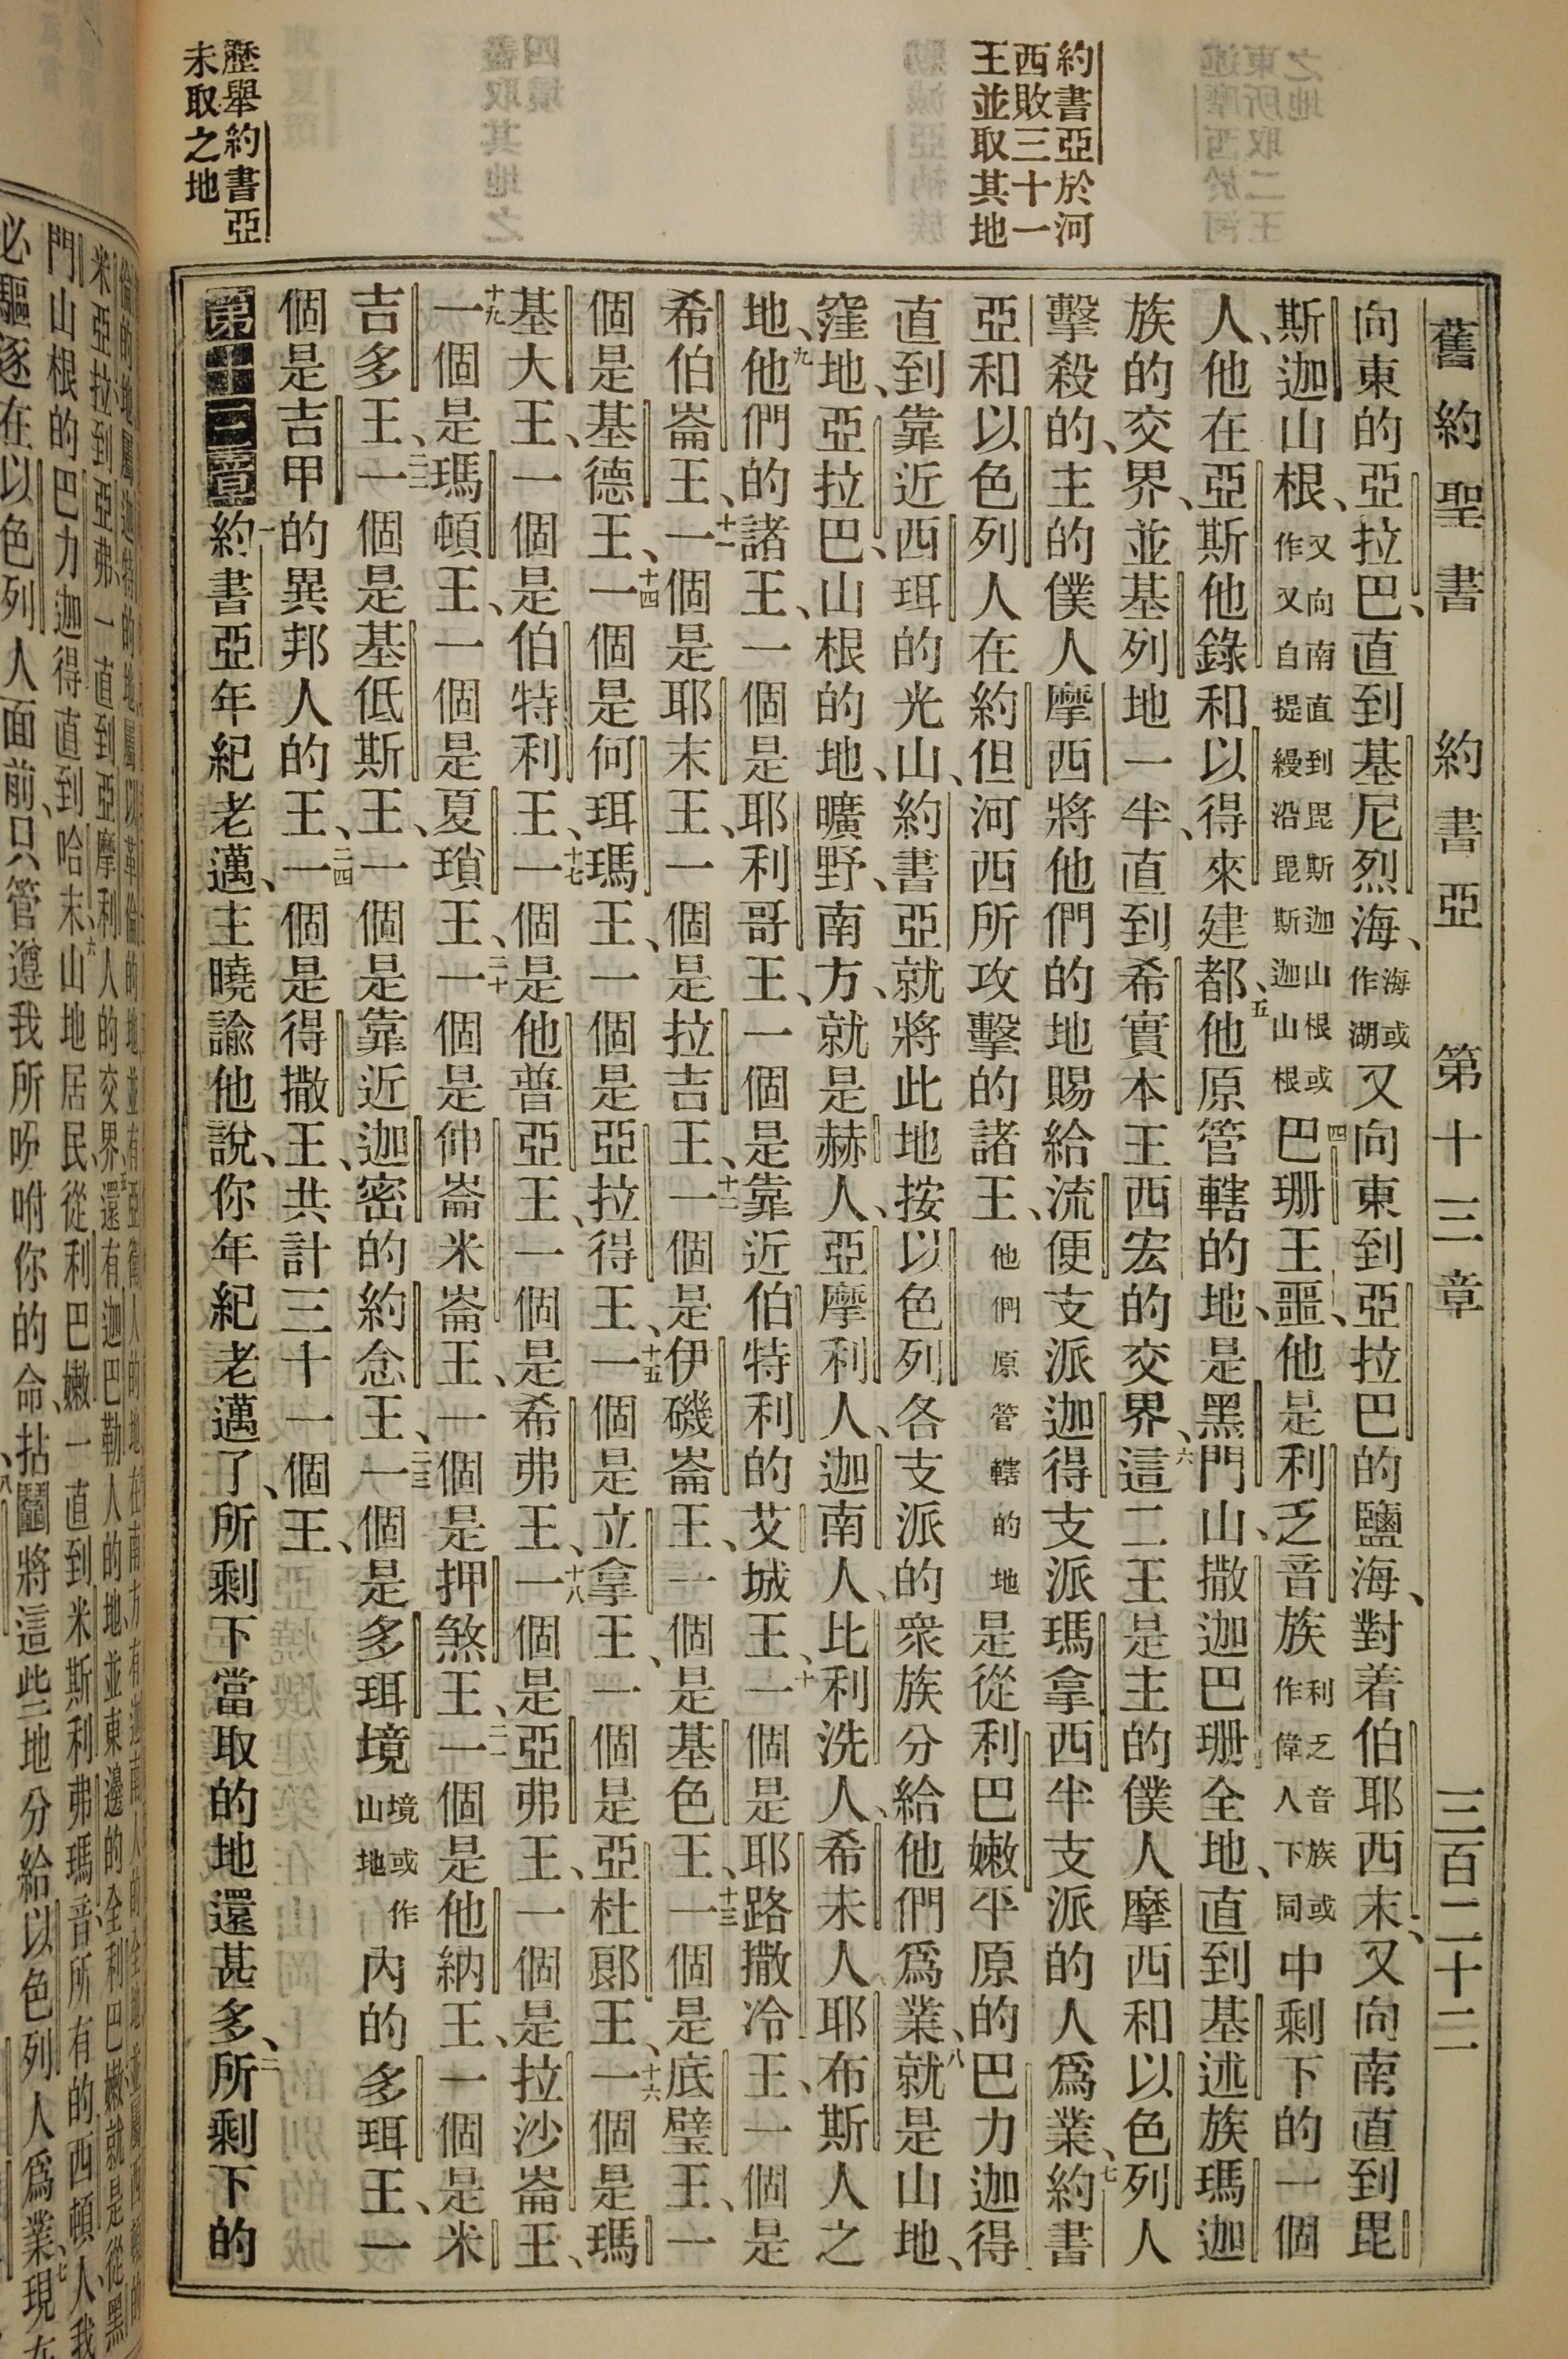 約書亞於河
西敗三十一
王並取其地
歷舉約書亞
未取之地
舊約聖書 約書亞 第十三章 三百二十二
向東的亞拉巴、直到基尼烈海、海或作湖又向東到亞拉巴的鹽海、對着伯耶西末、又向南直到毘
斯迦山根、又向南直到毘斯迦山根或作又自提縵沿毘斯迦山根四巴珊王噩、他是利乏音族利乏音族或作偉人下同中剩下的一個
人、他在亞斯他錄和以得來建都、五他原管轄的地、是黑門山、撒迦巴珊全地、直到基述族瑪迦
族的交界、並基列地一半、直到希實本王西宏的交界、六這二王是主的僕人摩西和以色列人
擊殺的、主的僕人摩西將他們的地賜給流便支派迦得支派瑪拿西半支派的人爲業、七約書
亞和以色列人在約但河西所攻擊的諸王、他們原管轄的地是從利巴嫩平原的巴力迦得
直到靠近西珥的光山、約書亞就將此地按以色列各支派的衆族分給他們爲業、八就是山地、
窪地、亞拉巴、山根的地、曠野、南方、就是赫人、亞摩利人、迦南人、比利洗人、希未人、耶布斯人之
地、九他們的諸王、一個是耶利哥王、一個是靠近伯特利的艾城王、十一個是耶路撒冷王、一個是
希伯崙王、十一一個是耶末王、一個是拉吉王、十二一個是伊磯崙王、一個是基色王、十三一個是底璧王、一
個是基德王、十四一個是何珥瑪王、一個是亞拉得王、十五一個是立拿王、一個是亞杜郞王、十六一個是瑪
基大王、一個是伯特利王、十七一個是他普亞王、一個是希弗王、十八一個是亞弗王、一個是拉沙崙王、
十九一個是瑪頓王、一個是夏瑣王、二十一個是伸崙米崙王、一個是押煞王、二一一個是他納王、一個是米
吉多王、二二一個是基低斯王、一個是靠近迦密的約念王、二三一個是多珥境境或作山地內的多珥王、一
個是吉甲的異邦人的王、二四一個是得撒王、共計三十一個王、
第十三章一約書亞年紀老邁、主曉諭他說、你年紀老邁了、所剩下當取的地還甚多、二所剩下的
門山根的巴力迦得直到哈末、六山地居民、從利巴嫩一直到米斯利弗瑪音、所有的西頓人、我
必驅逐在以色列人面前、只管遵我所吩咐你的命拈鬮將這些地分給以色列人爲業、七現在